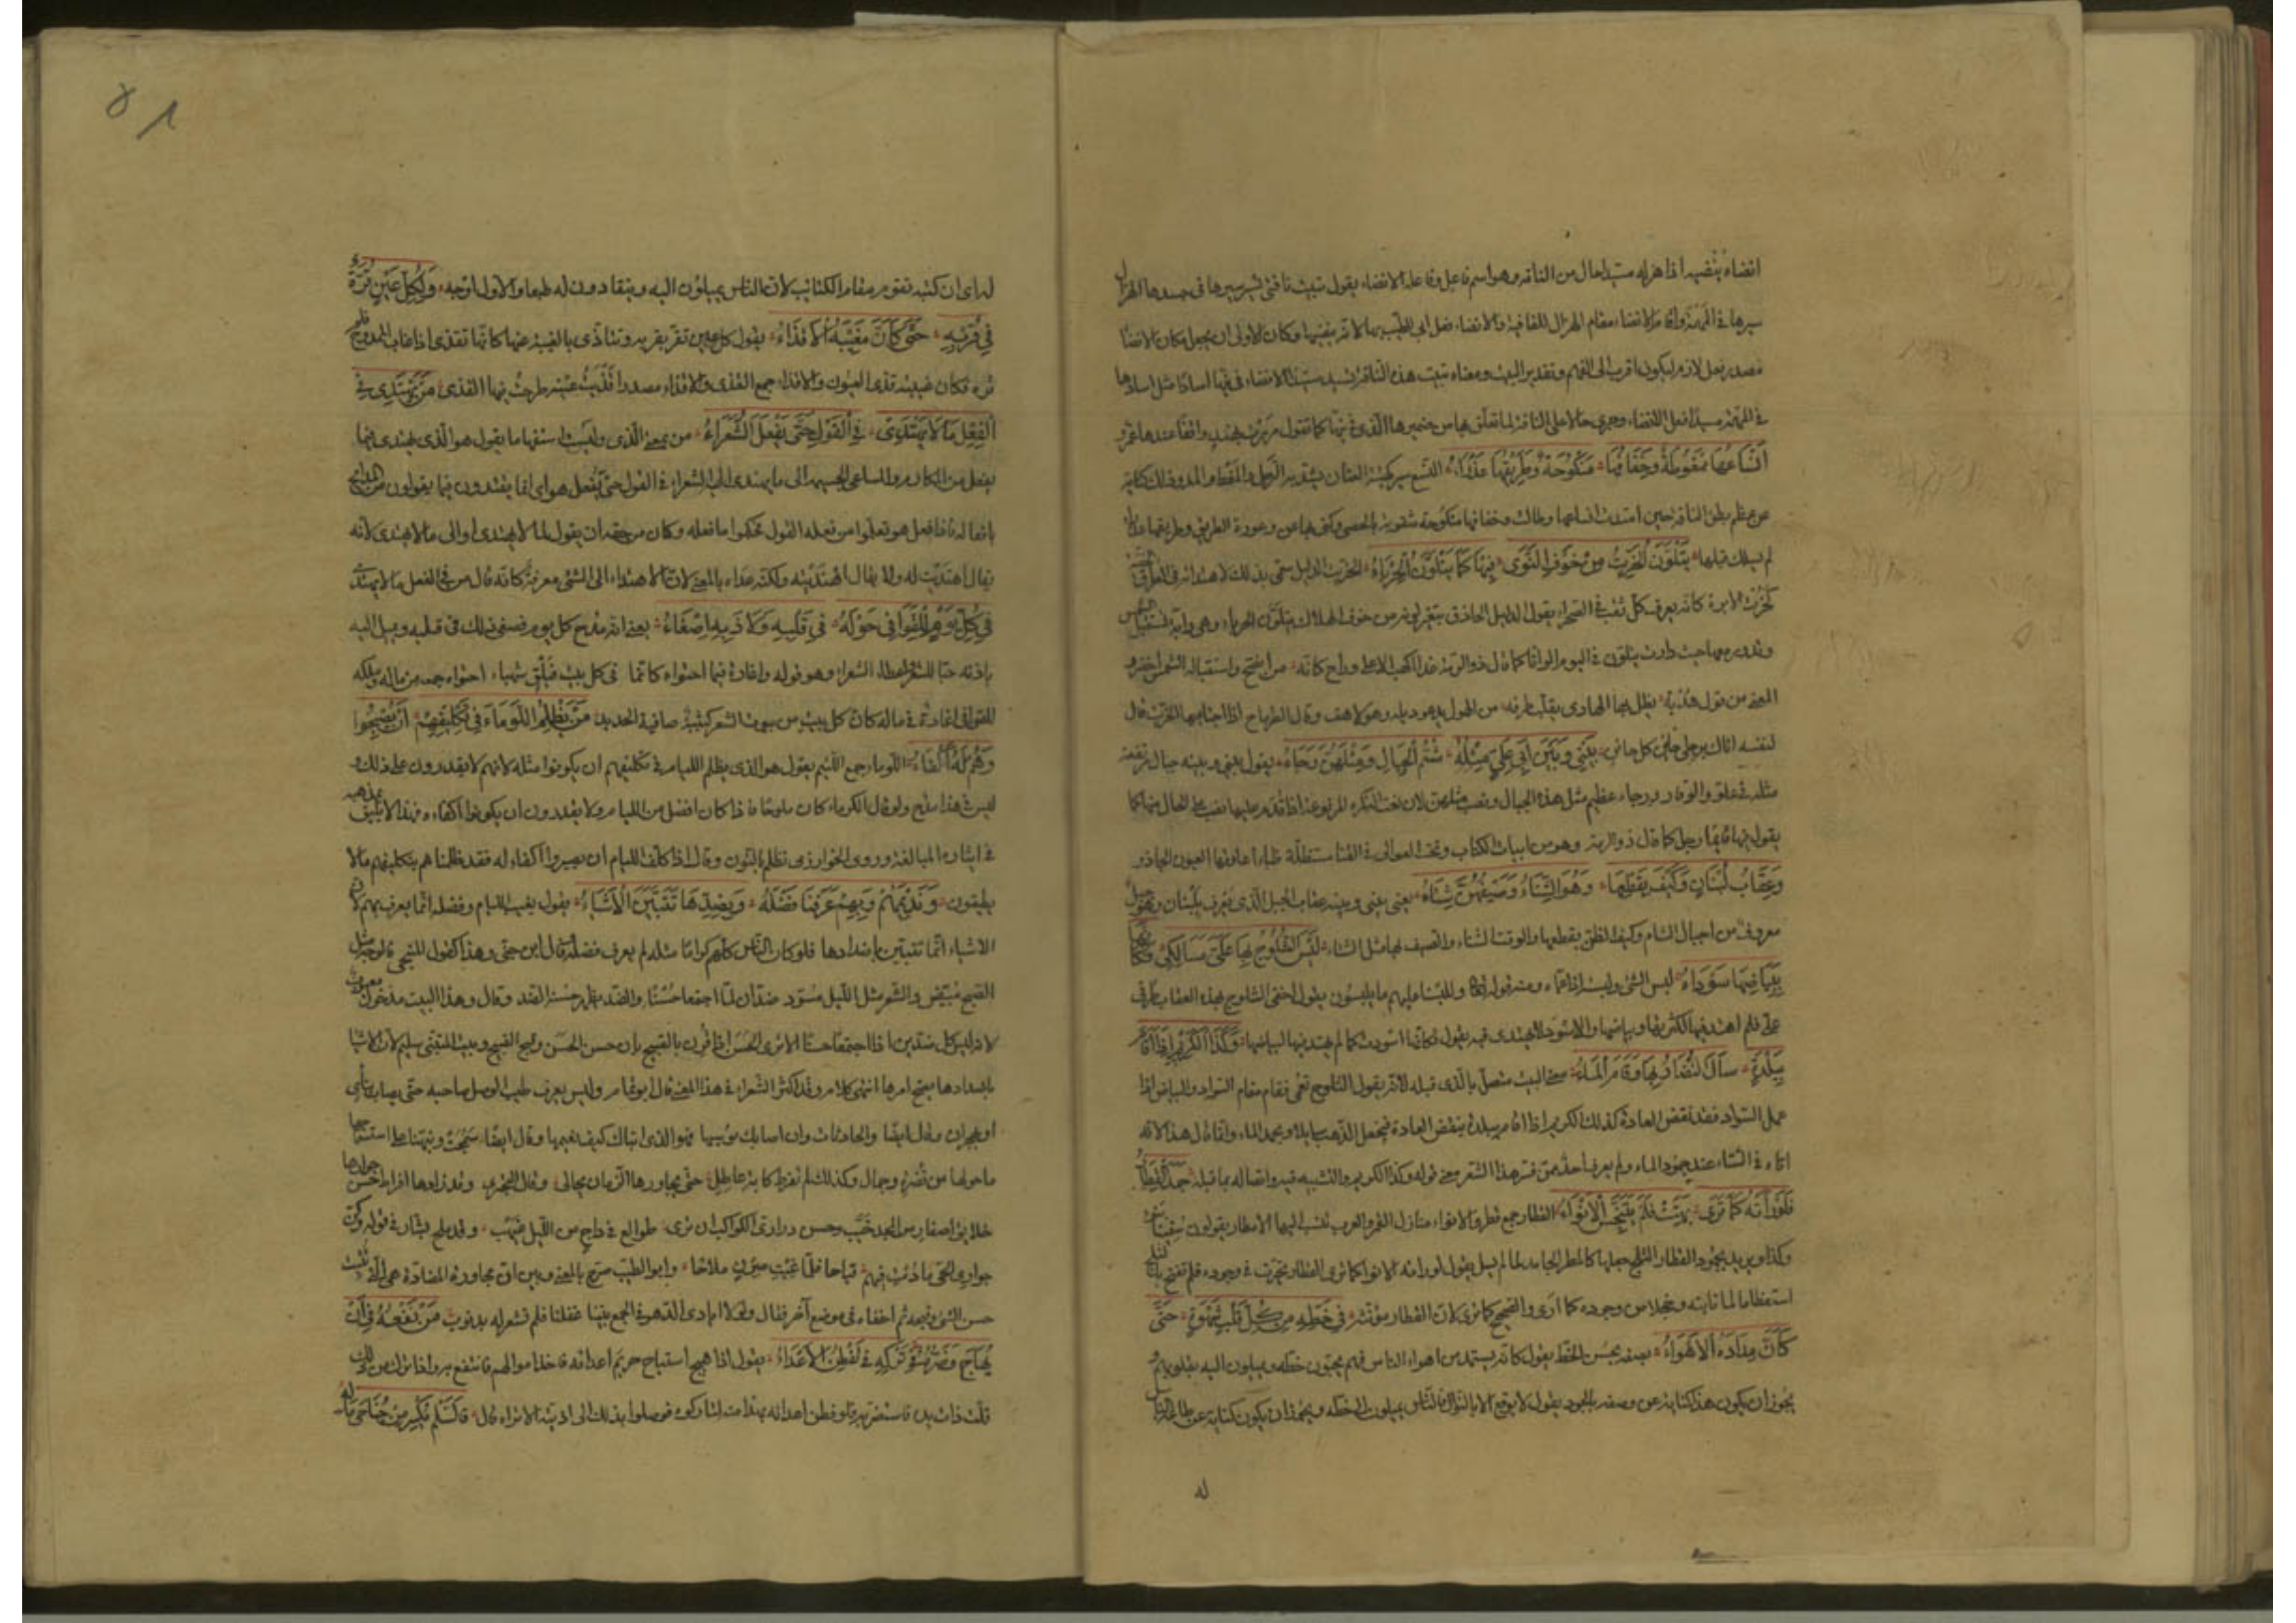 انضاه ينضيه اذا هزله مسئدا حال من الناقة وهو اسم فاعل وفاعله الانضاء يقول تبيت ناقتى تسير سيرها فى جسدها الهزال
سيرها فى المهمه واقام الانضاء مقام الهزال للقافية والانضاء فعل ابى الطيب بها لانه ينضيها وكان الاولى ان يجعل مكان الانضاء
مصدر فعل لازم ليكون اقرب الى الفهم وتقدير البيت ومعناه تبيت هذه الناقة تسئد مسئدا الانضاء فى نيها اسآدا مثل اسآدها
فى المهمه مسئدا فعل الانضاء وجرى حالا على الناقة لما تعلق بها من ضميرها الذى فى نيها كما تقول مررت بهند واقفا عندها عمرو
اَنساعُها مَمغُوطَةٌ وخِفَافُها مَنكُوحَةٌ وطَرِيقُها عَذْرَاءُ النسع سير كهيئة العنان يشد به الرحل والمغط المد وذلك كناية
عن عظم بطن الناقة حين امتدت انساعها وطالت وخفافها منكوحة مثقوبة بالحصى وكنى بها عن وعورة الطريق وطريقها عذراء
لم يسلك قبلها يَتَلَوَّنُ الخِرِّيتُ مِن خَوفِ التَّوَى فيها كَما يَتَلَوَّنُ الحِرْباءُ الخريت الدليل سمى بذلك لاهتدائه فى الطرق الخفية
كخرت الابرة كانه يعرف كل ثقب فى الصحراء يقول الدليل الحاذق يتغير لونه من خوف الهلاك يتلون الحرباء وهى دابة تستقبل الشمس
وتدور معها حيث دارت يتلون فى اليوم الوانا كما قال ذو الرمة غدا اكهب الاعلى وراح كانه من الضح واستقباله الشمس اخضر و
المعنى من قول هدبة يظل بها الهادى يقلب طرفه من الهول يدعو ويله وهو لاهف وقال الطرماح اذا اجتابها الخريت قال
لنفسه اتاك برجلى حائن كل حائن بَينِى وبَينَ اَبِى علىٍّ مِثْلُهُ شُمُّ الجِبالِ ومِثْلَهُنَّ رَجاءُ يقول بينى وبينه جبال مرتفعة
مثله فى علو والوقار ورجاء عظيم مثل هذه الجبال ونصب مثلهن لان نعت النكرة المرفوعة اذا قدم عليها نصب على الحال منها كما
يقول فيها قائما رجل كما قال ذو الرمة وهو من ابيات الكتاب وتحت العوالى فى القنا مستظلة ظباء اعارتها العيون الجاذر
وعِقابُ لُبنانٍ وكَيفَ بقَطعِها وَهُوَ الشِّتاءُ وصَيفُهُنَّ شِتاءُ يعنى بينى وبينه عقاب الجبل الذى يعرف بلبنان وهو جبل
معروف من اجبال الشام وكيف الظن بقطعها والوقت الشتاء والصيف بها مثل الشتاء لَبَسَ الثُّلوجُ بِها عَلىَّ مَسالِكى فكأنها
بِبَياضِها سَودَاءُ لبس الشىء ولبسه اذا عماه ومنه قوله تعالى وللبسنا عليهم ما يلبسون يقول اخفى الثلوج بهذه العقاب طرقى
على فلم اهتد فيها لكثرتها وبياضها والاسود لا يهتدى فيه يقول فكانها اسودت لما لم يهتد فيها لبياضها وكَذَا الكَرِيمُ اِذا اقامَ
بِبَلدَةٍ سالَ النُّضارُ بِها وقامَ الماءُ معنى البيت متصل بالذى قبله لانه يقول الثلوج تعمى فقام مقام السواد والبياض اذا
عمل السواد فقد نقض العادة كذلك الكريم اذا اقام ببلدة ينقض العادة فيجعل الذهب سائلا ويجمد الماء وانما قال هذا لانه
اتاه فى الشتاء عند جمود الماء ولم يعرف احد ممن فسر هذا الشعر معنى قوله وكذا الكريم والتشبيه فيه واتصاله بما قبله جَمَدَ القِطارُ
فَلَو رَاَتهُ كَما تَرَى بُهِتَتْ فَلَم يَتَبَجَّسِ الاَنواءُ القطار جمع قطر والانواء منازل القمر والعرب تنسب اليها الامطار يقولون سقينا بنوء
وكذا ويريد بجمود القطار الثلج جعلها كالمطر الجامد لما لم يسل يقول لو راته الانواء كما ترى القطار تحيرت فى وجوده فلم تفتح بالثلج
استعظاما لما ثابته وخجلا من وجوده كما ارى والصحيح كما ترى لان القطار مؤنثة فى خَطِّهِ مِن كُلِّ قَلبٍ شَهوَةٌ حَتَّى
كَأَنَّ مِدادَهُ الاَهواءُ يصفه بحسن الخط يقول كانه يستمد من اهواء الناس فهم يحبون خطه ويميلون اليه بقلوبهم و
يجوز ان يكون هذا كناية عن وصفه بالجود يقول لا يوقع الا بالنوال فالناس يميلون الى خطه ويجوز ان يكون كناية عن طاعة الناس
له
٥١
له اى ان كتبه تقوم مقام الكتائب لان الناس يميلون اليه وينقادون له طبعا والاول اوجه ولِكُلِّ عَينٍ قُرَّةٌ
فى قُربِهِ حَتَّى كَأَنَّ مَغِيبَهُ الاَقذَاءُ يقول كل عين تقر بقربه وتتاذى بالغيبة عنها كانها تقذى اذا غاب الممدوح فلم
تره فكان غيبته قذى العيون والاقذاء جمع القذى والاقذاء مصدر اقذيت عينه طرحت فيها القذى مَن يَهتَدِى فى
الفِعلِ ما لا يَهتَدِى فى القَولِ حَتَّى يَفعَلَ الشُّعَراءُ من بمعنى الذى وليست استفهاما يقول هو الذى يهتدى فيما
يفعل من المكارم والمساعى الجسيمة الى ما لا يهتدى اليه الشعراء فى القول حتى يفعل هو اى انما يقتدون فيما يقولون من المدائح
بافعاله فاذا فعل هو تعلموا من فعله القول فحكوا ما فعله وكان من حقه ان يقول لما لا يهتدى او الى ما لا يهتدى لانه
يقال اهتديت له ولا يقال اهتديته ولكنه عداه بالمعنى لان الاهتداء الى الشىء معرفة كانه قال من فى الفعل ما لا يهتدى
فى كُلِّ يَومٍ لِلقَوافِى جَولَةٌ فى قَلبِهِ ولاُذنِهِ اِصغاءُ يعنى انه يمدح كل يوم فيصغى لذلك فى قلبه ويميل اليه
باذنه حبا للشعر اعطاء الشعراء وهو قوله واغارَةٌ فيما احتواه كانما فى كل بيت فيلق شهباء احتواه جمعه من ماله وملكه
للقوافى اغارة فى ماله كان كل بيت من بيوت الشعر كتيبة صافية الحديد مَن يَظلِمُ اللُّؤَماءَ فى تَكلِيفِهِم اَن يُصبِحُوا
وَهُم لَهُ اَكفَاءُ اللوماء جمع اللئيم يقول هو الذى يظلم اللئام فى تكليفهم ان يكونوا مثله لانهم لا يقدرون على ذلك و
ليس فى هذا مدح ولو قال الكرماء كان مدحا فاذا كان افضل من اللئام ولا يقدرون ان يكونوا اكفاءه فهذا لا يليق بمذهبه
فى ايثاره المبالغة وروى الخوارزمى نظلم بالنون وقال اذا كلفنا اللئام ان يصيروا اكفاء له فقد ظلمناهم بتكليفهم ما لا
يطيقون ونَذِيمُهُم وبِهِم عَرَفنا فَضلَهُ وبِضِدِّها تَتَبَيَّنُ الاَشياءُ يقول نعيب اللئام وفضله انما يعرف بهم لان
الاشياء انما تتبين باضدادها فلو كان الناس كلهم كراما مثله لم يعرف فضله قال ابن جنى وهذا كقول المنبجى فالوجه مثل
الصبح مبيض والشعر مثل الليل مسود ضدان لما اجتمعا حسنا والضد يظهر حسنه الضد وقال وهذا البيت مدخول معيوب
لانه ليس كل ضدين اذا اجتمعا حسنا الا ترى الحسن اذا قرن بالقبيح بان حسن الحسن وقبح القبيح وبيت المتنبى سليم لان الاشياء
باضدادها يصح امرها انتهى كلامه وقد اكثر الشعراء فى هذا المعنى قال ابو تمام وليس يعرف طيب الوصل صاحبه حتى يصاب بنأى
او بهجران وقال ايضا والحادثات وان اصابك بؤسها فهو الذى انباك كيف نعيمها وقال ايضا سمجت ونبهنا على استسماجها
ما حولها من نضرة وجمال وكذاك لم تفرط كابة عاطل حتى يجاورها الزمان بحالى وقال البحترى وقد زادها افراط حسن جوارها
خلائق اصفار من المجد خيب وحسن درارى الكواكب ان ترى طوالع فى داج من الليل غيهب وقد ملح بشار فى قوله وكن
جوارى الحى ما دمت فيهم قباحا فلما غبت صرن ملاحا وابو الطيب صرح بالمعنى وبين ان مجاورة المضادة هى التى تثبت
حسن الشىء وقبحه ثم اخفاه فى موضع آخر فقال ولولا ايادى الدهر فى الجمع بيننا غفلنا فلم نشعر له بذنوب مَن نَفعُهُ فى اَن
يُهاجَ وضُرُّهُ فى تَركِهِ لَو تَفطِنُ الاَعداءُ يقول اذا هيج استباح حريم اعدائه فاخذ اموالهم فانتفع به واذا ترك من ذلك
قلت ذات يده فاستضر به فلو فطن اعدائه بهذا منه لتاركوه فوصلوا بذلك الى اذيته الا تراه قال فالسلم تكسر من جناحى ماله